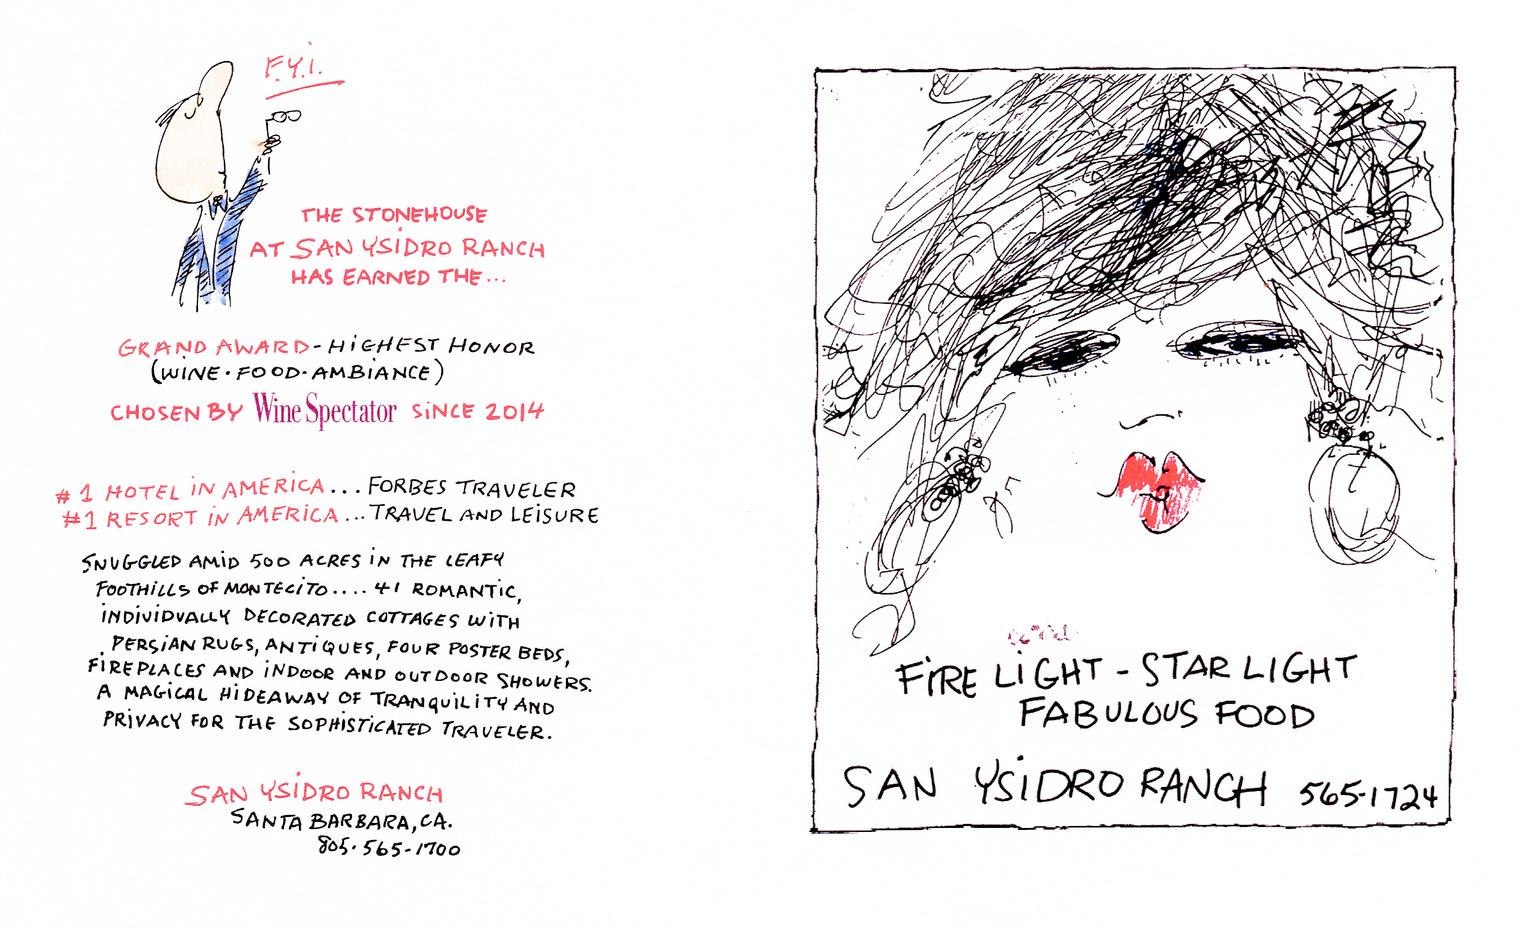 F.Y.I.
THE STONEHOUSE
AT SAN YSIDRO RANCH
HAS EARNED THE...
GRAND AWARD - HIGHEST HONOR
(WINE · FOOD · AMBIANCE)
CHOSEN BY Wine Spectator SINCE 2014
#1 HOTEL IN AMERICA... FORBES TRAVELER
#1 RESORT IN AMERICA... TRAVEL AND LEISURE
SNUGGLED AMID 500 ACRES IN THE LEAFY
FOOTHILLS OF MONTECITO.... 41 ROMANTIC,
INDIVIDUALLY DECORATED COTTAGES WITH
PERSIAN RUGS, ANTIQUES, FOUR POSTER BEDS,
FIREPLACES AND INDOOR AND OUTDOOR SHOWERS.
A MAGICAL HIDEAWAY OF TRANQUILITY AND
PRIVACY FOR THE SOPHISTICATED TRAVELER.
SAN YSIDRO RANCH
SANTA BARBARA, CA.
805·565-1700
FIRE LIGHT - STAR LIGHT
FABULOUS FOOD
SAN YSIDRO RANCH 565-1724